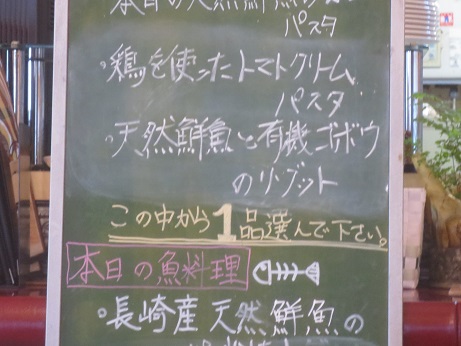 本日の天然鮮魚
パスタ
・鶏を使ったトマトクリーム
パスタ
・天然鮮魚と有機ゴボウ
のリゾット
この中から1品選んで下さい。
本日の魚料理
・長崎産 天然鮮魚の